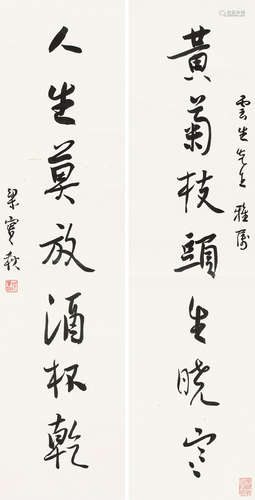 黃菊枝頭生曉寒
雲生先生雅屬
人生莫放酒杯乾
梁實秋